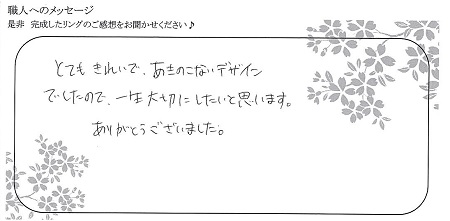 職人へのメッセージ
是非 完成したリングのご感想をお聞かせください♪
とても きれいで、あきのこないデザイン
でしたので、一生大切にしたいと思います。
ありがとうございました。